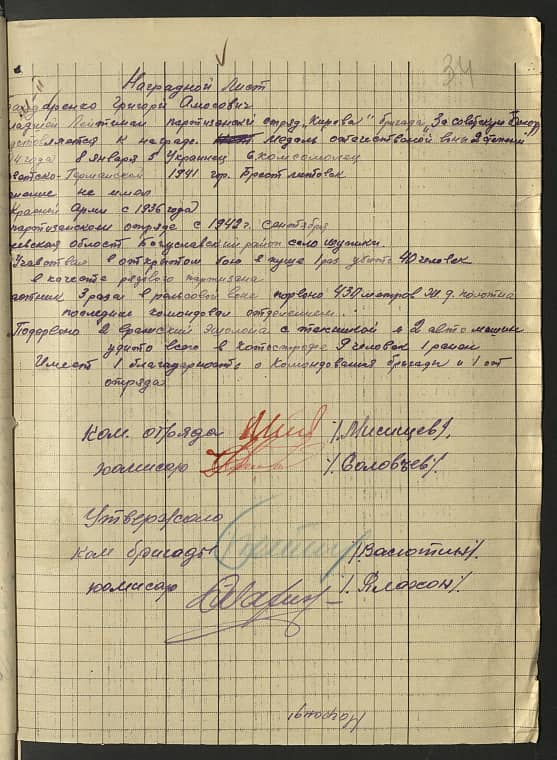 34
Наградной Лист
Григорий Амосович
Лейтинант партизанский отряд "Кирова" бригада "За советскую
к награде. Медаль отечественой воны 2 степени
8 января 5 Украинец б. комсомолец
Германской 1941 гор. Брест литовск
не имел
Арми с 1936 года
партизанском отряде с 1942 г. Сентября
област Богуславский район село
Участвовал в открытом бою в пуще 1 раз убито 40 человек
в качестве рядового партизана
3 раза в рельсовой воне порвоно 430 метров Ж.д. полотна
последнее командовал отделением.
Подорвоно 2 Вражский Эшолона с техникой и 2 авто машин
убито всего в Катострофе 9 человек 1 ранен
Имеет 1 благодарность о Командования бригады и 1 от
отряда
Ком. отряда /. Мисищев /.
комисар /. Соловцев /.
Утвержоно
Ком бригады /Васютин /.
комисар /.